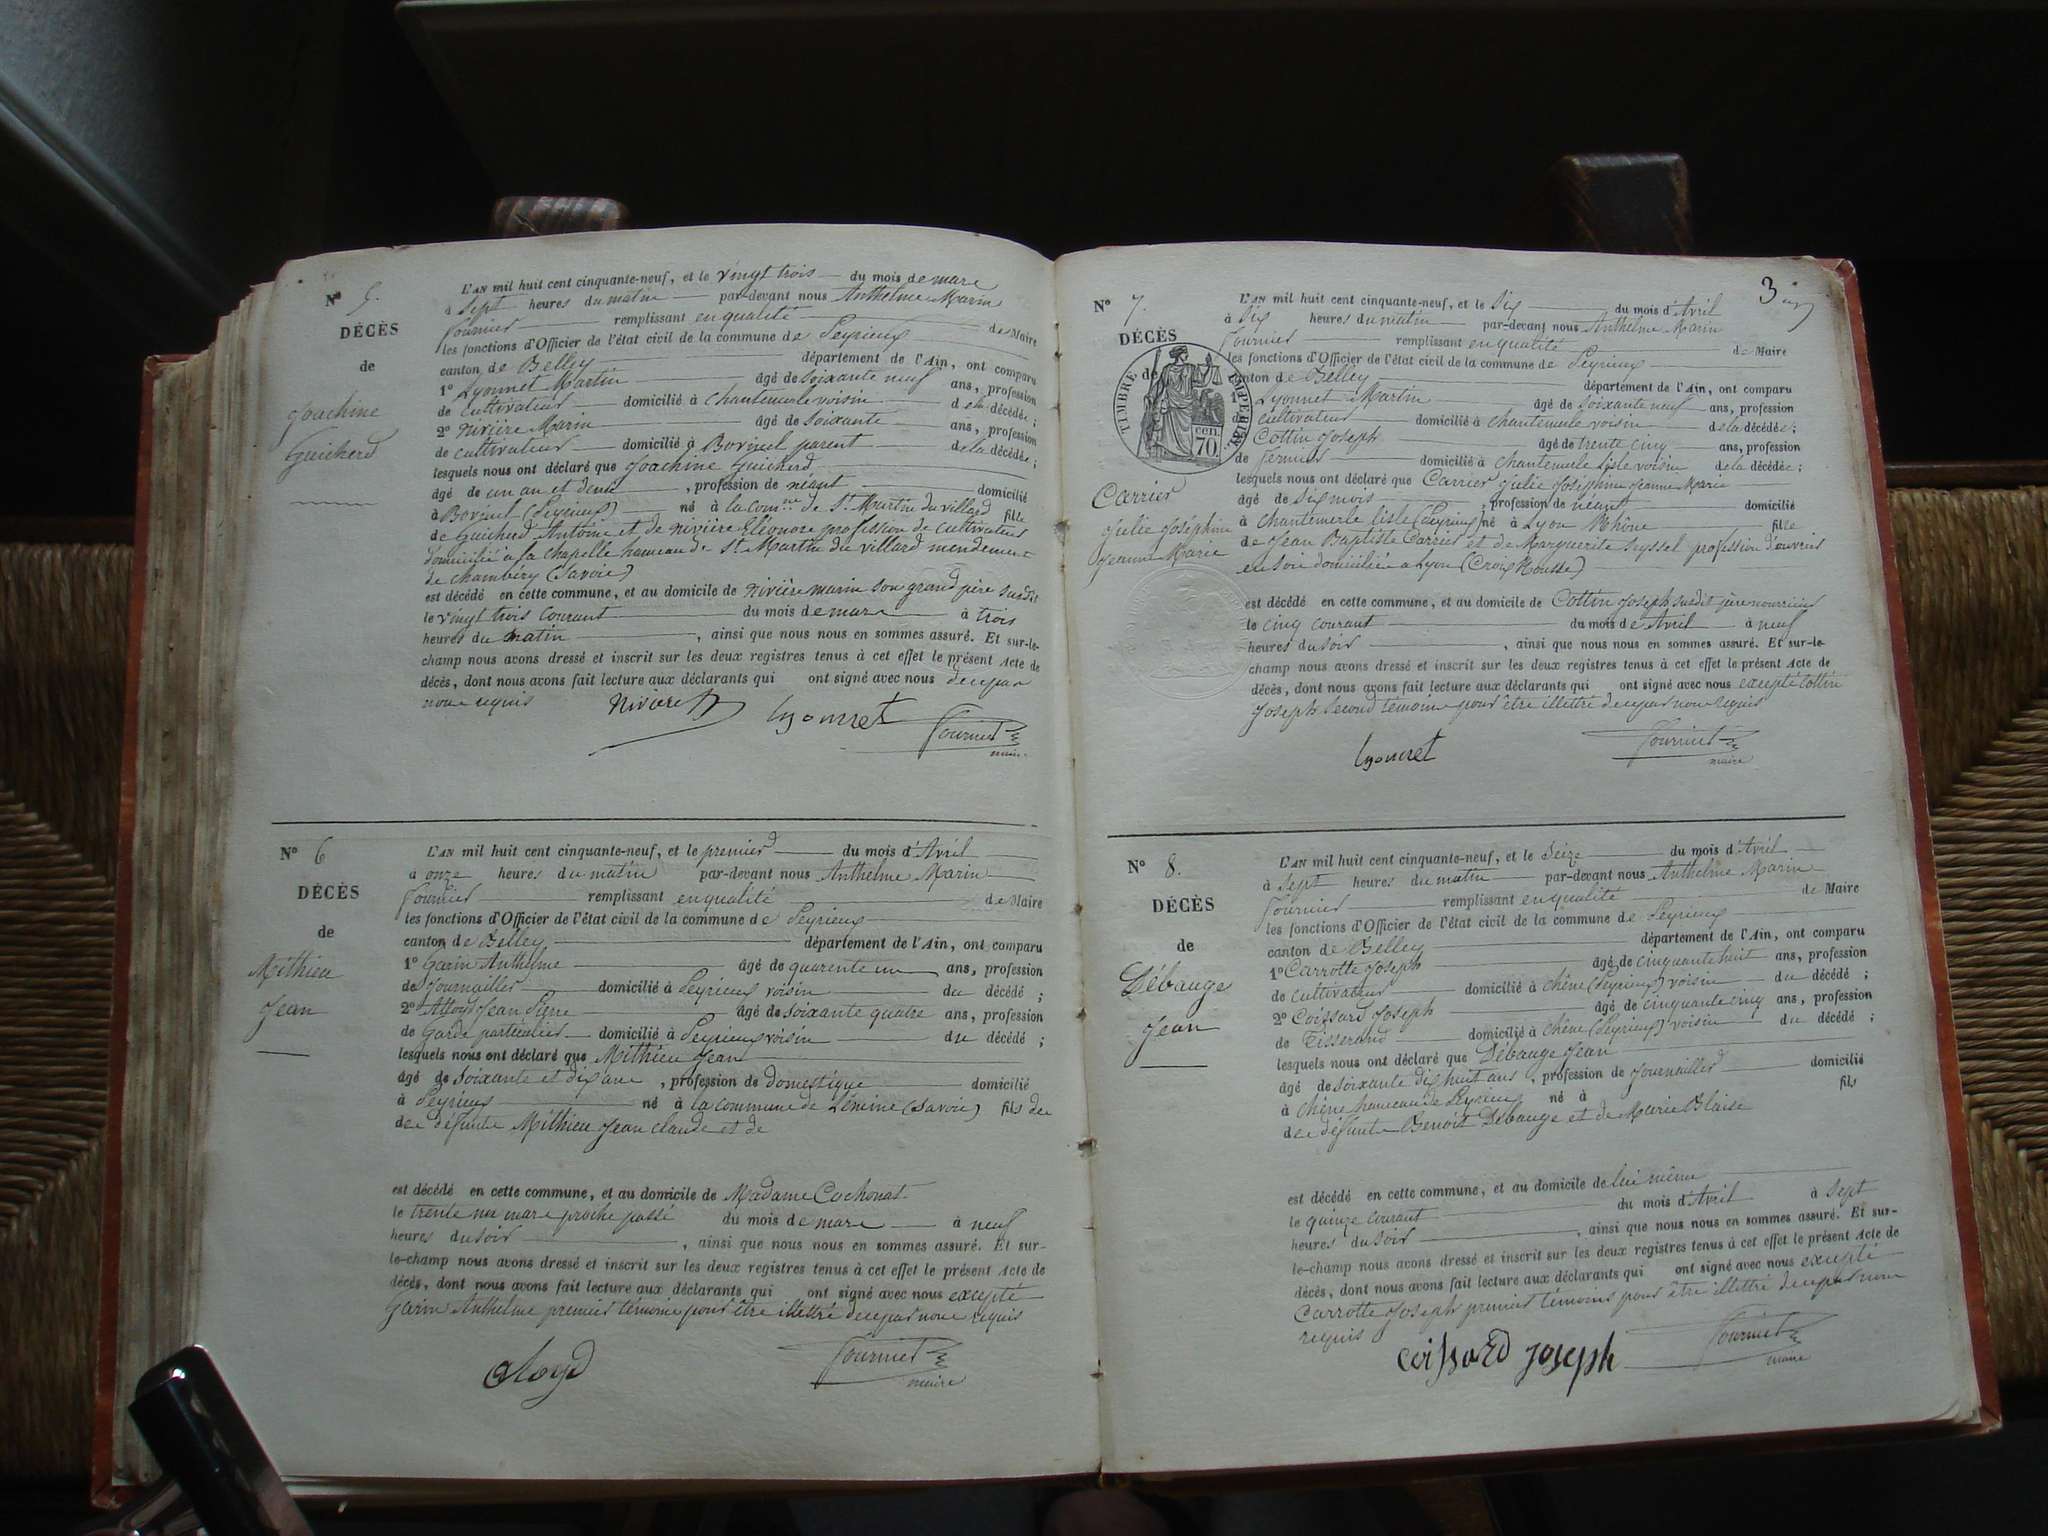 N° 5.
DÉCÈS
de
Joachine
Guicherd
L'AN mil huit cent cinquante-neuf, et le vingt trois du mois de mars
à sept heures du matin par-devant nous Anthelme Marin
Fournier remplissant en qualité de Maire
les fonctions d'Officier de l'état civil de la commune de Peyrieux
canton de Belley département de l'Ain, ont comparu
1° Lyonnet Martin âgé de soixante neuf ans, profession
de cultivateur domicilié à Chantemerle voisin de la décédée;
2° Rivière Marin âgé de soixante ans, profession
de cultivateur domicilié à Bovinel parent de la décédée;
lesquels nous ont déclaré que Joachine Guicherd
âgé de un an et demi, profession de néant domicilié
à Bovinel (Peyrieux) né à la com.ne de St Martin du villard fille
de Guicherd Antoine et de Rivière Eléonore profession de cultivateurs
domicilié a la chapelle hameau de St Martin du villard mendement
de chambéry (Savoie)
est décédé en cette commune, et au domicile de Rivière marin son grand père susdit
le vingt trois courant du mois de mars à trois
heures du matin, ainsi que nous nous en sommes assuré. Et sur-le-
champ nous avons dressé et inscrit sur les deux registres tenus à cet effet le présent Acte de
décès, dont nous avons fait lecture aux déclarants qui ont signé avec nous de ce par
nous requis
Rivière M Lyonnet Fournier
maire
N° 6
DÉCÈS
de
Mithieu
Jean
L'AN mil huit cent cinquante-neuf, et le premier du mois d'Avril
à onze heures du matin par-devant nous Anthelme Marin
Fournier remplissant en qualité de Maire
les fonctions d'Officier de l'état civil de la commune de Peyrieux
canton de Belley département de l'Ain, ont comparu
1° Garin Anthelme âgé de quarente un ans, profession
de Journailler domicilié à Peyrieux voisin du décédé;
2° Jean Pierre âgé de soixante quatre ans, profession
de Garde particulier domicilié à Peyrieux voisin du décédé;
lesquels nous ont déclaré que Mithieu Jean
âgé de soixante et dix ans, profession de domestique domicilié
à Peyrieux né à la commune de (Savoie) fils de
de défunts Mithieu Jean claude et de
est décédé en cette commune, et au domicile de Madame Cochonat
le trente un mars proche passé du mois de mars à neuf
heures du soir, ainsi que nous nous en sommes assuré. Et sur-
le-champ nous avons dressé et inscrit sur les deux registres tenus à cet effet le présent Acte de
décès, dont nous avons fait lecture aux déclarants qui ont signé avec nous excepté
Garin Anthelme premier témoin pour être illettré de ce par nous requis
Fournier
maire
3
N° 7.
DÉCÈS
de
TIMBRE IMPÉRIAL
cen. 70
Carrier
Julie Joséphine
Jeanne Marie
L'AN mil huit cent cinquante-neuf, et le six du mois d'Avril
à six heures du matin par-devant nous Anthelme Marin
Fournier remplissant en qualité de Maire
les fonctions d'Officier de l'état civil de la commune de Peyrieux
canton de Belley département de l'Ain, ont comparu
1° Lyonnet Martin âgé de soixante neuf ans, profession
cultivateur domicilié à chantemerle voisin de la décédée;
Cottin Joseph âgé de trente cinq ans, profession
de fermier domicilié à Chantemerle lisle voisin de la décédée;
lesquels nous ont déclaré que Carrier Julie Joséphine Jeanne Marie
âgé de six mois, profession de néant domicilié
à chantemerle lisle (Peyrieux) né à Lyon Rhône fille
de Jean Baptiste Carrier et de Marguerite Seyssel profession d'ouvriers
en soie domiciliée a Lyon (Croix Rousse)
est décédé en cette commune, et au domicile de Cottin Joseph susdit père nourricier
le cinq courant du mois de Avril à neuf
heures du soir, ainsi que nous nous en sommes assuré. Et sur-le-
champ nous avons dressé et inscrit sur les deux registres tenus à cet effet le présent Acte de
décès, dont nous avons fait lecture aux déclarants qui ont signé avec nous excepté Cottin
Joseph second témoin pour être illettré de ce par nous requis
Lyonnet Fournier
maire
N° 8.
DÉCÈS
de
Débauge
Jean
L'AN mil huit cent cinquante-neuf, et le Seize du mois d'Avril
à sept heures du matin par-devant nous Anthelme Marin
Fournier remplissant en qualité de Maire
les fonctions d'Officier de l'état civil de la commune de Peyrieux
canton de Belley département de l'Ain, ont comparu
1° Carrotte Joseph âgé de cinquante huit ans, profession
de cultivateur domicilié à chêne (Peyrieux) voisin du décédé;
2° Coissard Joseph âgé de cinquante cinq ans, profession
de Tisserand domicilié à chêne (Peyrieux) voisin du décédé;
lesquels nous ont déclaré que Débauge Jean
âgé de soixante dix huit ans, profession de Journailler domicilié
à chêne hameau de Peyrieux né à fils
de défunts Benoit Débauge et de Marie Blaise
est décédé en cette commune, et au domicile de lui même
le quinze courant du mois d'Avril à sept
heures du soir, ainsi que nous nous en sommes assuré. Et sur-
le-champ nous avons dressé et inscrit sur les deux registres tenus à cet effet le présent Acte de
décès, dont nous avons fait lecture aux déclarants qui ont signé avec nous excepté
Carrotte Joseph premier témoins pour être illettré de ce par nous
requis
Coissard Joseph Fournier
maire